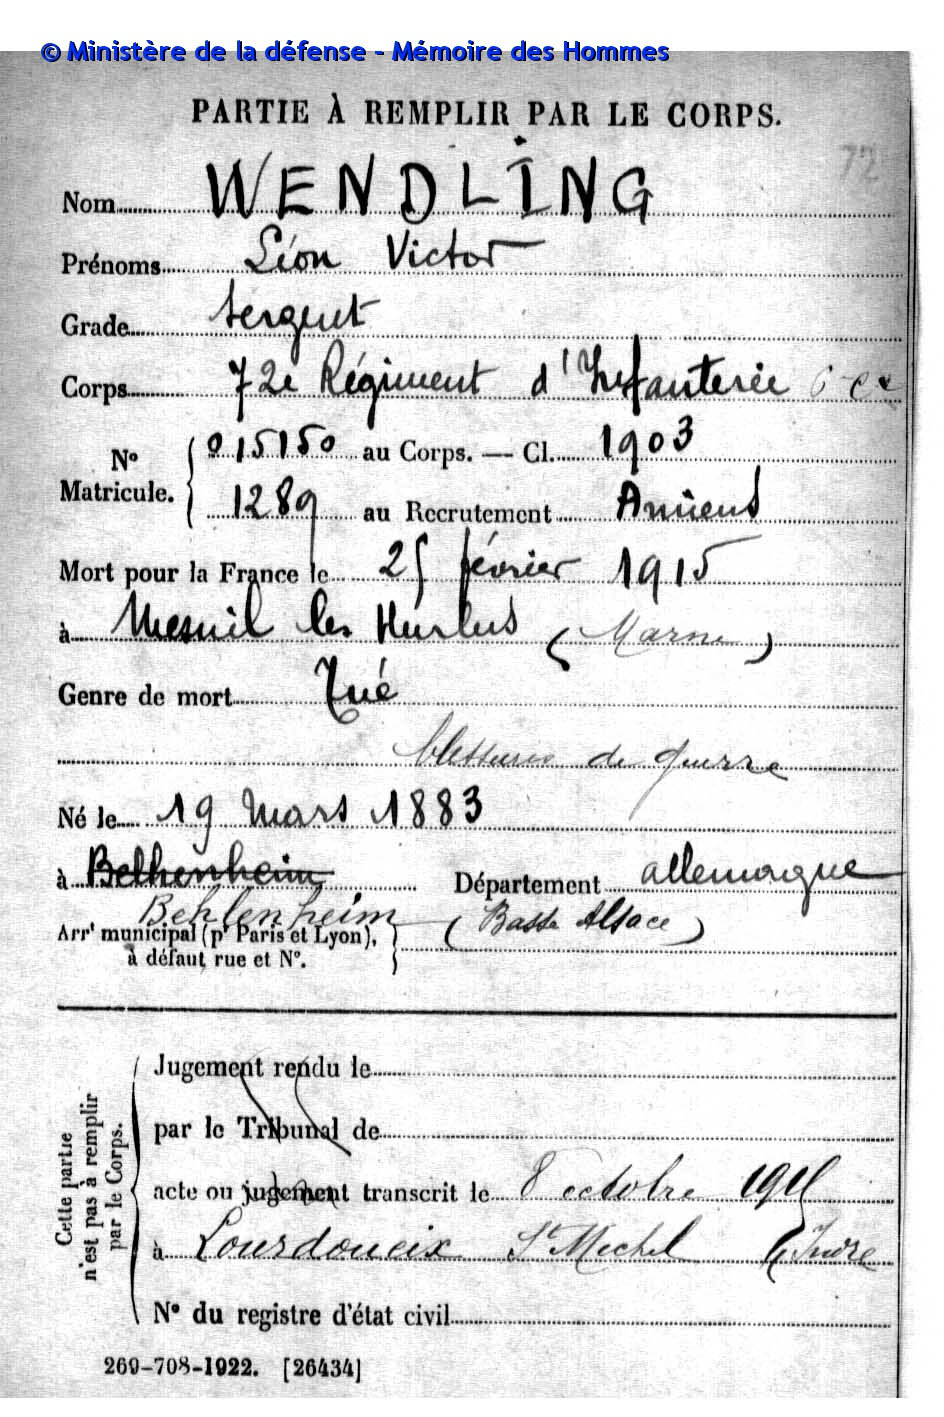 © Ministère de la défense - Mémoire des Hommes
PARTIE À REMPLIR PAR LE CORPS.
72
Nom WENDLING
Prénoms Léon Victor
Grade Sergent
Corps 72e Régiment d'Infanterie
N° Matricule. 015150 au Corps. — Cl. 1903
1289 au Recrutement Amiens
Mort pour la France le 25 février 1915
à Mesnil les Hurlus (Marne)
Genre de mort Tué
blessures de guerre
Né le 19 mars 1883
à Belhenheim Département allemagne
Behlenheim (Basse Alsace)
Arrt municipal (pr Paris et Lyon),
à défaut rue et N°.
Cette partie n'est pas à remplir par le Corps.
Jugement rendu le
par le Tribunal de
acte ou jugement transcrit le 8 octobre
à Lourdoueix St Michel (Indre
N° du registre d'état civil
269-708-1922. [26434]